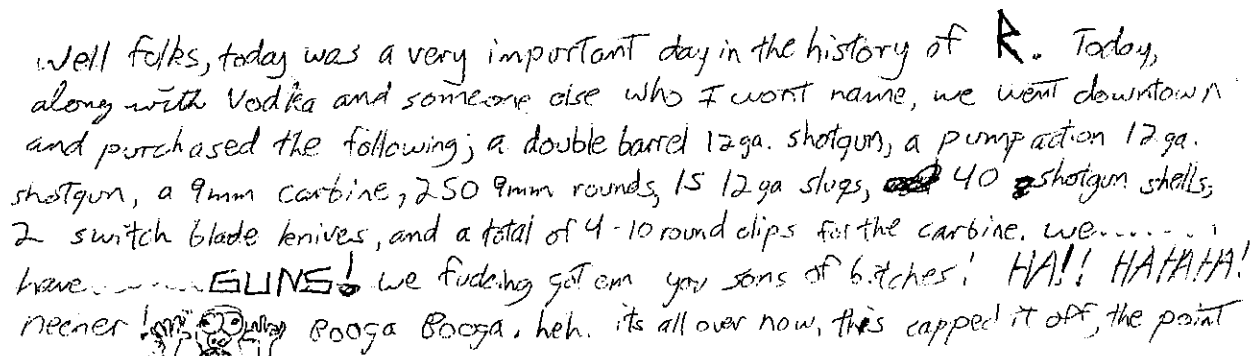 Well folks, today was a very important day in the history of R. Today,
along with Vodka and someone else who I wont name, we went downtown
and purchased the following; a double barrel 12ga. shotgun, a pump action 12ga.
shotgun, a 9mm carbine, 250 9mm rounds, 15 12ga slugs, 40 shotgun shells,
2 switch blade knives, and a total of 4 - 10 round clips for the carbine. we.......
have.........GUNS! we fucking got em you sons of bitches! HA!! HAHAHA!
neener! Booga Booga. heh. its all over now, this capped it off, the point